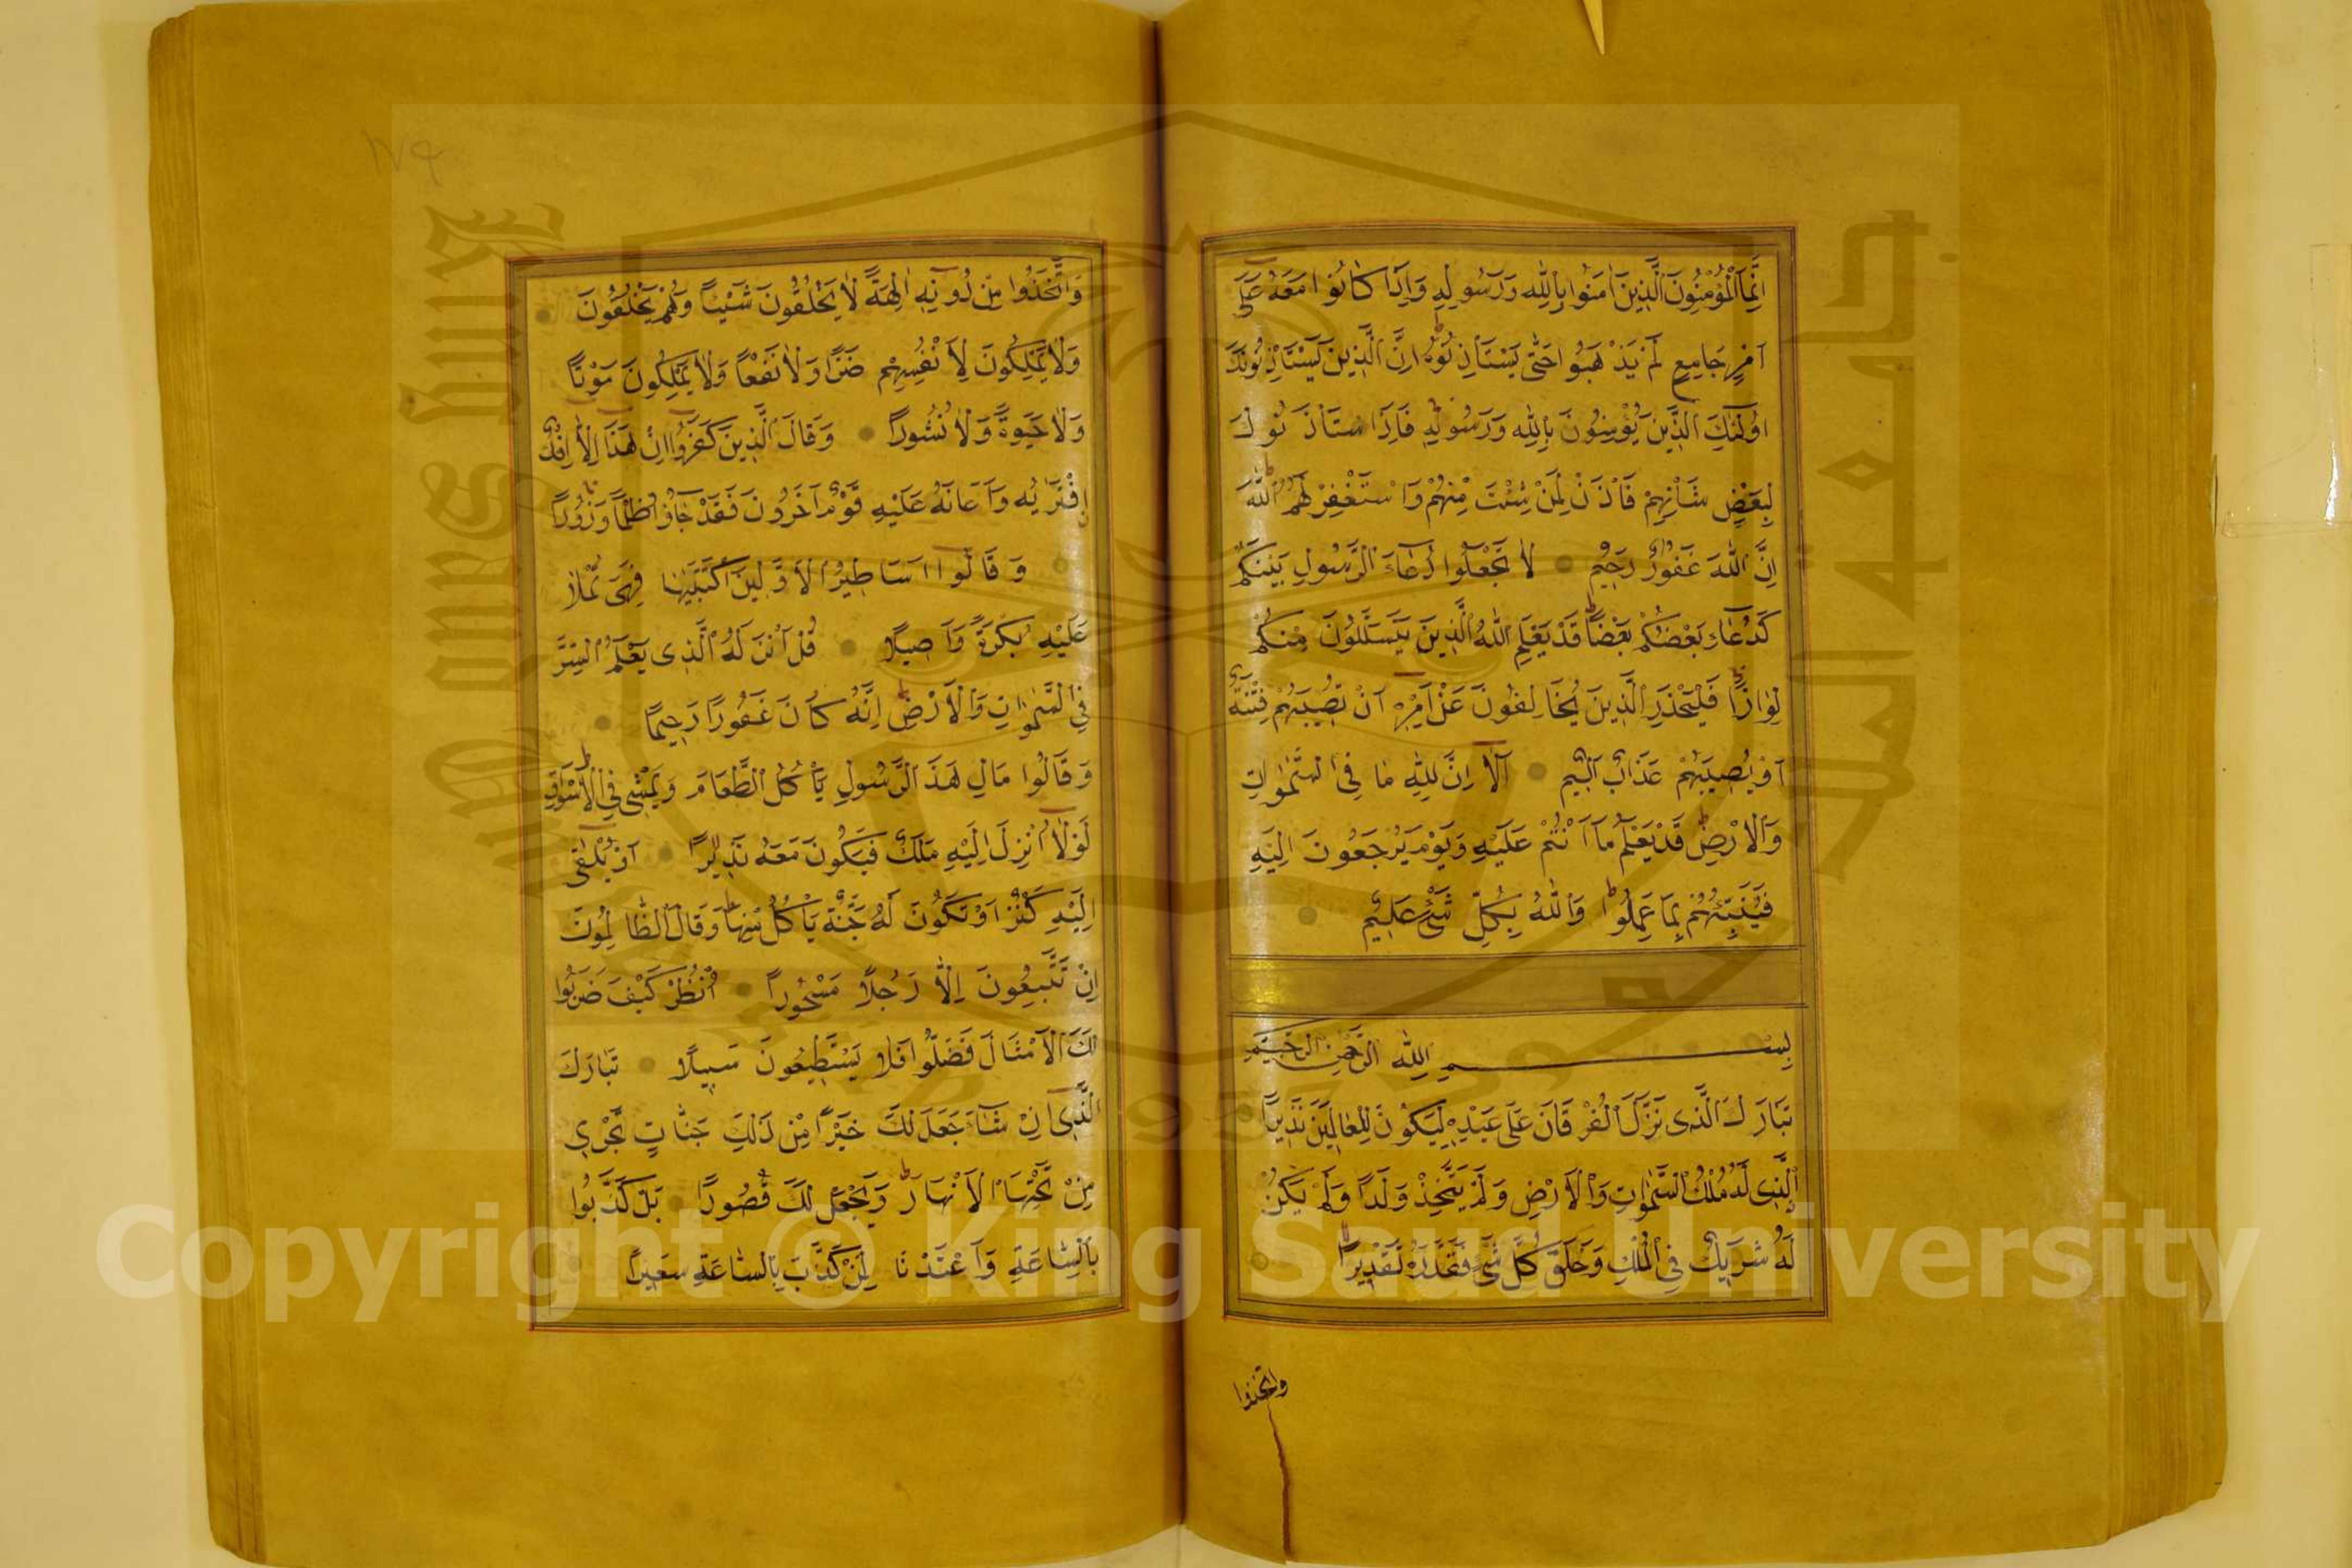 اِنَّمَا الْمُؤْمِنُونَ الَّذِينَ اٰمَنُوا بِاللّٰهِ وَرَسُولِهِ وَاِذَا كَانُوا مَعَهُ عَلٰى
اَمْرٍ جَامِعٍ لَمْ يَذْهَبُوا حَتّٰى يَسْتَاْذِنُوهُ اِنَّ الَّذِينَ يَسْتَاْذِنُونَكَ
اُولٰئِكَ الَّذِينَ يُؤْمِنُونَ بِاللّٰهِ وَرَسُولِهِ فَاِذَا اسْتَاْذَنُوكَ
لِبَعْضِ شَاْنِهِمْ فَاْذَنْ لِمَنْ شِئْتَ مِنْهُمْ وَاسْتَغْفِرْ لَهُمُ اللّٰهَ
اِنَّ اللّٰهَ غَفُورٌ رَحِيمٌ لَا تَجْعَلُوا دُعَاءَ الرَّسُولِ بَيْنَكُمْ
كَدُعَاءِ بَعْضِكُمْ بَعْضًا قَدْ يَعْلَمُ اللّٰهُ الَّذِينَ يَتَسَلَّلُونَ مِنْكُمْ
لِوَاذًا فَلْيَحْذَرِ الَّذِينَ يُخَالِفُونَ عَنْ اَمْرِهِ اَنْ تُصِيبَهُمْ فِتْنَةٌ
اَوْ يُصِيبَهُمْ عَذَابٌ اَلِيمٌ اَلَا اِنَّ لِلّٰهِ مَا فِي السَّمٰوَاتِ
وَالْاَرْضِ قَدْ يَعْلَمُ مَا اَنْتُمْ عَلَيْهِ وَيَوْمَ يُرْجَعُونَ اِلَيْهِ
فَيُنَبِّئُهُمْ بِمَا عَمِلُوا وَاللّٰهُ بِكُلِّ شَيْءٍ عَلِيمٌ
بِسْمِ اللّٰهِ الرَّحْمٰنِ الرَّحِيمِ
تَبَارَكَ الَّذِي نَزَّلَ الْفُرْقَانَ عَلٰى عَبْدِهِ لِيَكُونَ لِلْعَالَمِينَ نَذِيرًا
اَلَّذِي لَهُ مُلْكُ السَّمٰوَاتِ وَالْاَرْضِ وَلَمْ يَتَّخِذْ وَلَدًا وَلَمْ يَكُنْ
لَهُ شَرِيكٌ فِي الْمُلْكِ وَخَلَقَ كُلَّ شَيْءٍ فَقَدَّرَهُ تَقْدِيرًا
واتخذوا
١٧٩
وَاتَّخَذُوا مِنْ دُونِهِ اٰلِهَةً لَا يَخْلُقُونَ شَيْئًا وَهُمْ يُخْلَقُونَ
وَلَا يَمْلِكُونَ لِاَنْفُسِهِمْ ضَرًّا وَلَا نَفْعًا وَلَا يَمْلِكُونَ مَوْتًا
وَلَا حَيٰوةً وَلَا نُشُورًا وَقَالَ الَّذِينَ كَفَرُوا اِنْ هٰذَا اِلَّا اِفْكٌ
افْتَرٰيهُ وَاَعَانَهُ عَلَيْهِ قَوْمٌ اٰخَرُونَ فَقَدْ جَاؤُا ظُلْمًا وَزُورًا
وَقَالُوا اَسَاطِيرُ الْاَوَّلِينَ اكْتَتَبَهَا فَهِيَ تُمْلٰى
عَلَيْهِ بُكْرَةً وَاَصِيلًا قُلْ اَنْزَلَهُ الَّذِي يَعْلَمُ السِّرَّ
فِي السَّمٰوَاتِ وَالْاَرْضِ اِنَّهُ كَانَ غَفُورًا رَحِيمًا
وَقَالُوا مَالِ هٰذَا الرَّسُولِ يَاْكُلُ الطَّعَامَ وَيَمْشِي فِي الْاَسْوَاقِ
لَوْلَا اُنْزِلَ اِلَيْهِ مَلَكٌ فَيَكُونَ مَعَهُ نَذِيرًا اَوْ يُلْقٰى
اِلَيْهِ كَنْزٌ اَوْ تَكُونُ لَهُ جَنَّةٌ يَاْكُلُ مِنْهَا وَقَالَ الظَّالِمُونَ
اِنْ تَتَّبِعُونَ اِلَّا رَجُلًا مَسْحُورًا اُنْظُرْ كَيْفَ ضَرَبُوا
لَكَ الْاَمْثَالَ فَضَلُّوا فَلَا يَسْتَطِيعُونَ سَبِيلًا تَبَارَكَ
الَّذِي اِنْ شَاءَ جَعَلَ لَكَ خَيْرًا مِنْ ذٰلِكَ جَنَّاتٍ تَجْرِي
مِنْ تَحْتِهَا الْاَنْهَارُ وَيَجْعَلْ لَكَ قُصُورًا بَلْ كَذَّبُوا
بِالسَّاعَةِ وَاَعْتَدْنَا لِمَنْ كَذَّبَ بِالسَّاعَةِ سَعِيرًا
جامعة الملك سعود
King Saud University
1957
Copyright © King Saud University